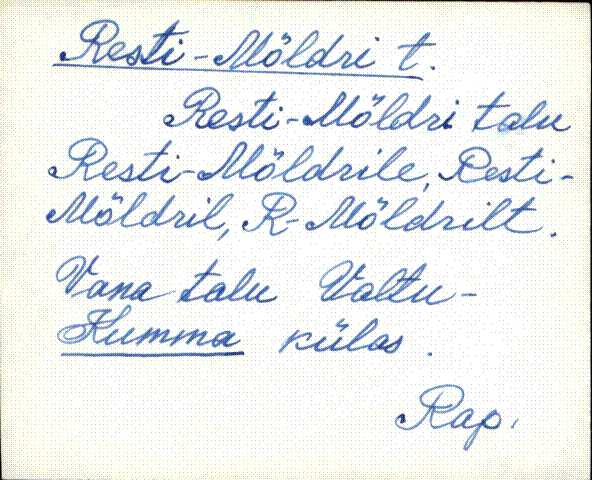 Resti-Möldri t.
Resti-Möldri talu
Resti-Möldrile, Resti-
Möldril, R-Möldrilt.
Vana talu Valtu-
Kumma külas.
Rap.